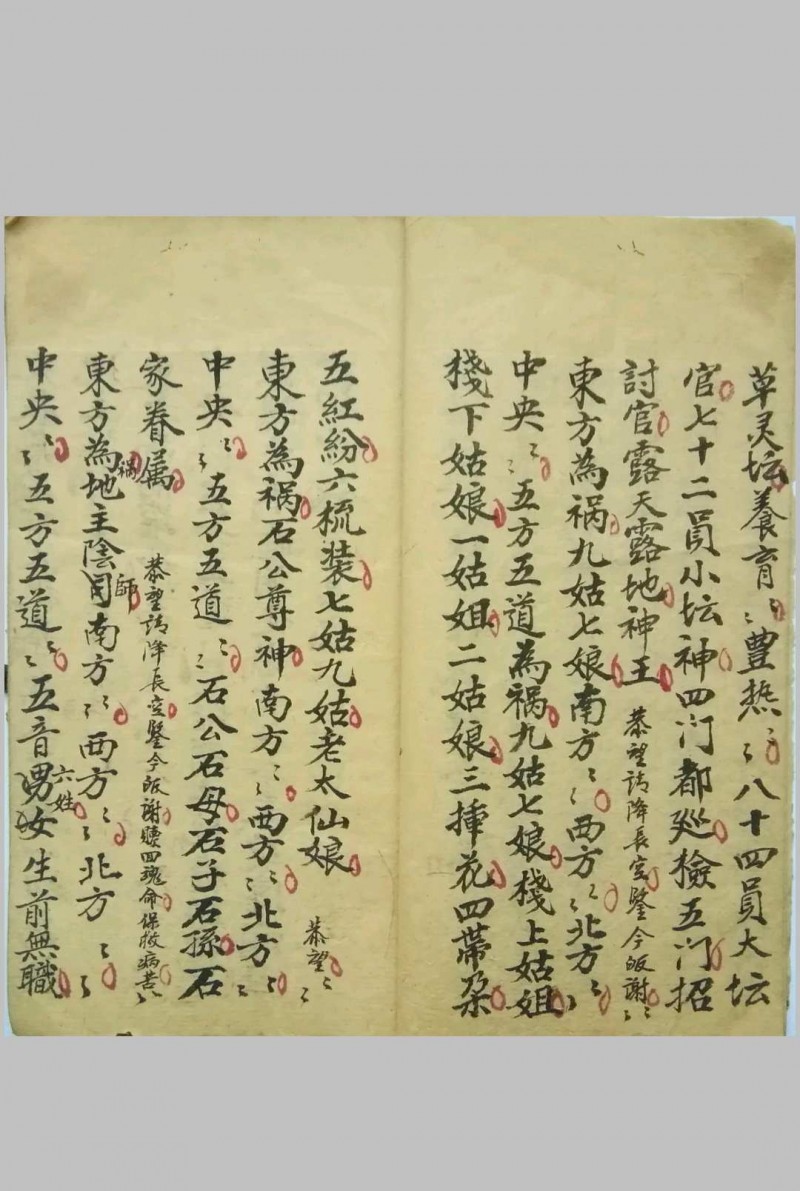 草灵坛養育〻豊熊〻八十四員大坛
官七十二員小坛神四门都巡檢五门招
討官露天露地神王恭望請降長空鑒今皈謝〻〻
東方為禍九姑七娘南方〻〻西方〻〻北方〻〻
中央〻〻五方五道為禍九姑七娘棧上姑姐
棧下姑娘一姑姐二姑娘三揷花四帶朶
五紅紛六梳装七姑九姑老太仙娘恭望〻〻
東方為禍石公尊神南方〻〻西方〻〻北方〻〻
中央〻〻五方五道〻〻石公石母石子石孫石
家眷属恭望請降長空鑒今皈謝賧四魂命保救病苦〻〻
東方為禍地主陰師南方〻〻西方〻〻北方〻〻
中央〻〻五方五道〻〻五音六姓男女生前無職